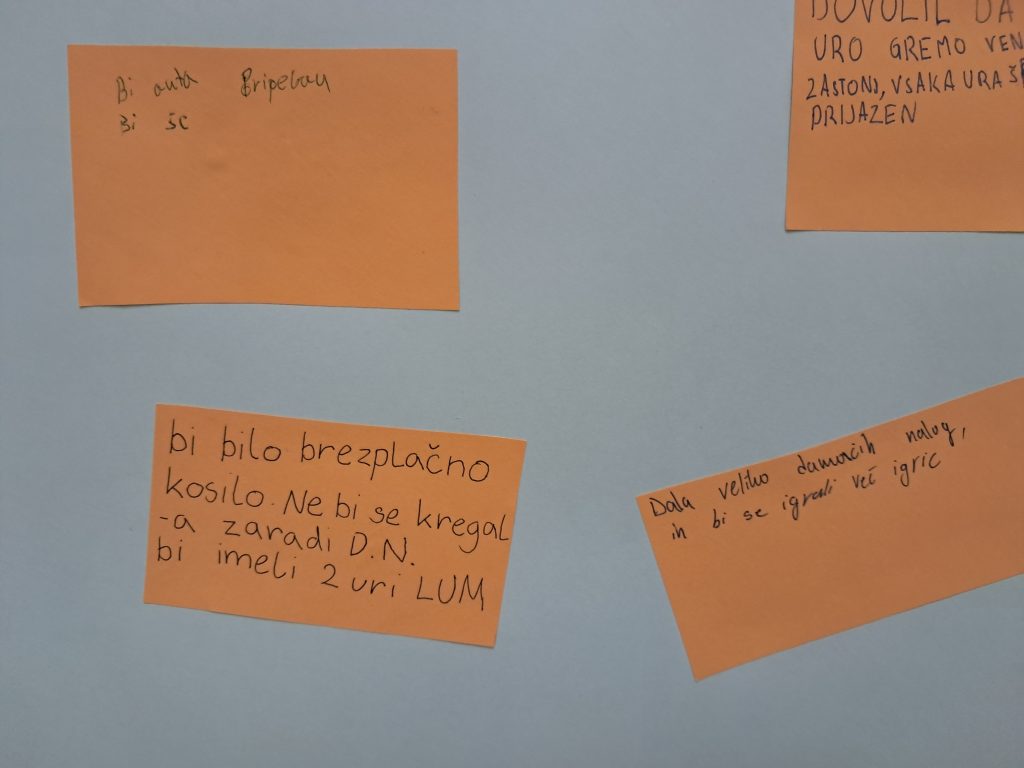 Bi auta Pripelau
Bi se
DOVOLIL DA
URO GREMO VEN
ZASTONJ, VSAKA URA
PRIJAZEN
bi bilo brezplačno
kosilo. Ne bi se kregal
-a zaradi D.N.
bi imeli 2 uri LUM
Dala veliko damačih nalog,
in bi se igrali več igric